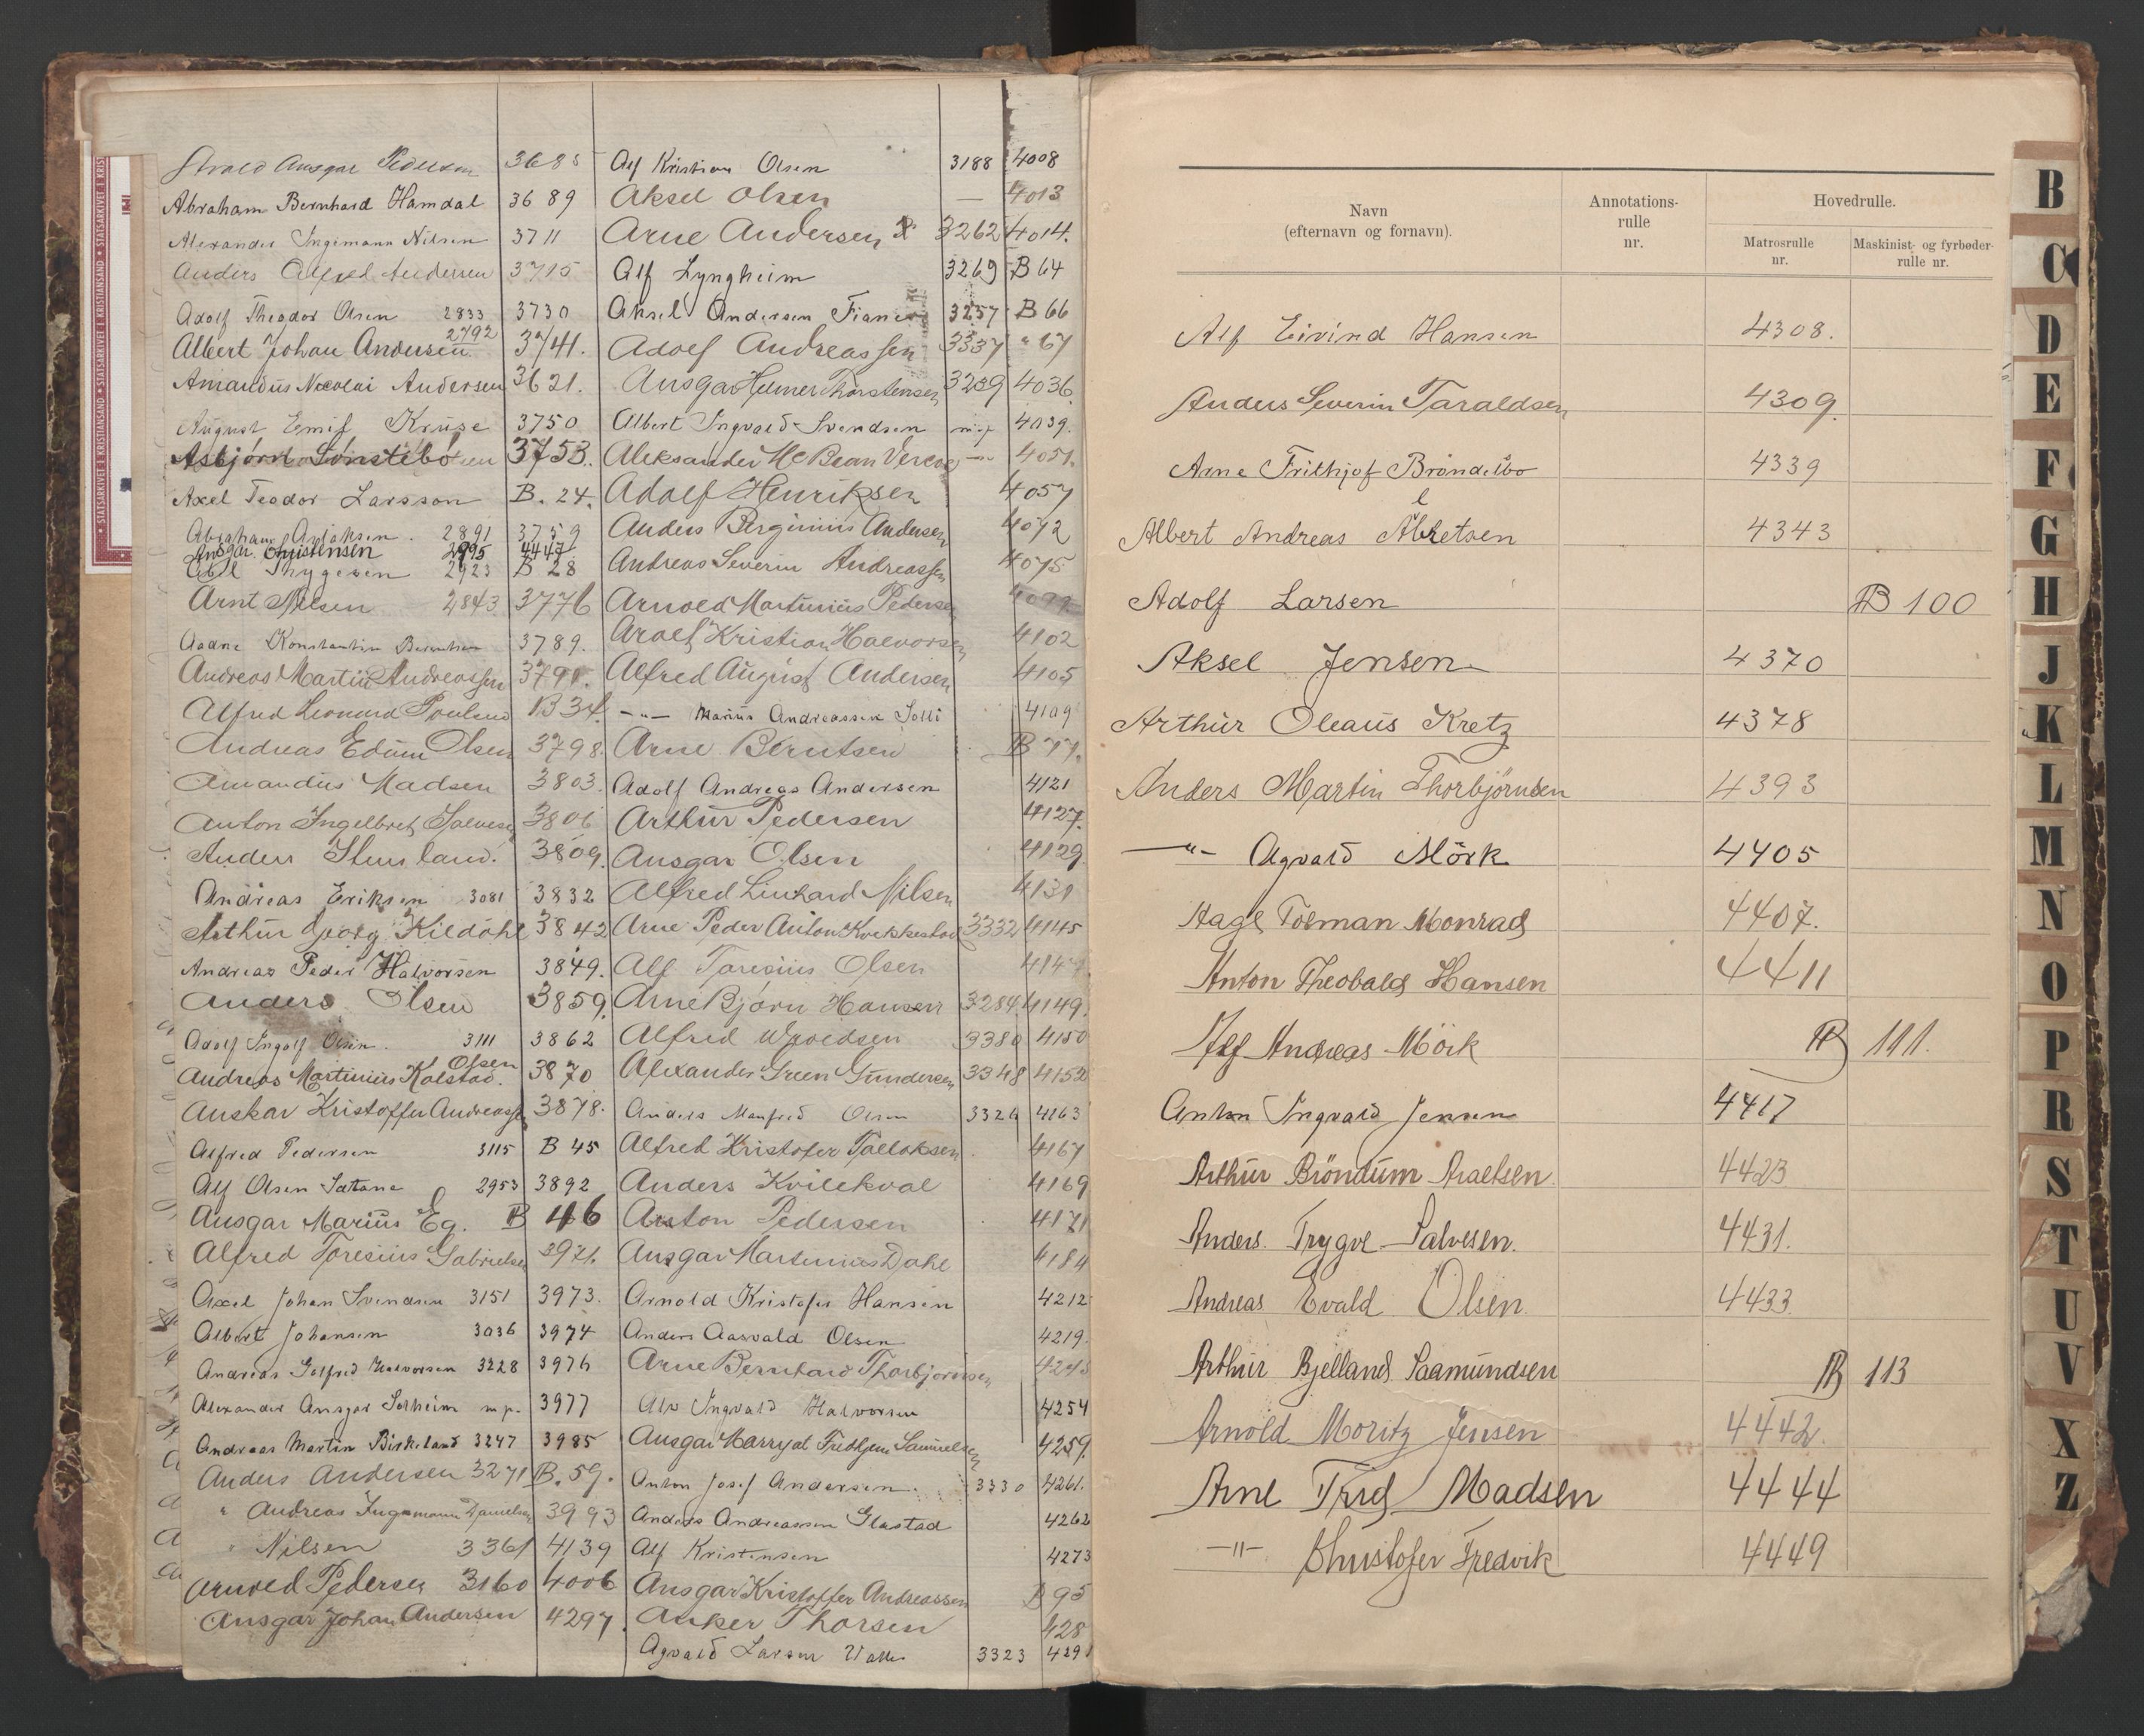 Ansgar Pedersen 3685
Abraham Bernhard Hamdal 3689
Alexander Ingemann Nilsen 3711
Anders Alfred Andersen 3715
Adolf Theodor Olsen 2833 3730
Albert Johan Andersen 2792 3741.
Amandus Nicolai Andersen 3621.
August Emil Kruse 3750
Asbjörn Lönstebö 3753.
Axel Teodor Larsson B. 24.
Abraham Aslaksen. 2891 3759
Ansgar. Christensen 2995 4447
Thygesen 2923 B 28
Arnt Nilsen 2843 3776
Konstantin Berentsen 3789.
Andreas Martin Andreassen 3791.
Alfred Leonard Poulsen B 34.
Andreas Edvin Olsen 3798.
Amandus Madsen 3803.
Anton Ingelbret Salvesen 3806
Anders Stensland. 3809.
Andreas Eriksen 3081 3832
Arthur Georg Kildahl 3842
Andreas Peder Halvorsen 3849.
Anders Olsen 3859.
Adolf Ingolf Olsen. 3111 3862
Olsen
Andreas Martinius Kalstad. 3870
Anskar Kristoffer Andreassen 3878.
Alfred Pedersen 3115 B 45
Alf Olsen Sættane 2953 3892
Ansgar Marius Eg. B 46
Alfred Toresius Gabrielsen 3971.
Axel Johan Svendsen 3151 3973.
Albert Johansen 3036 3974
Andreas Gotfred Halvorsen 3228 3976
Alexander Ansgar Solheim m.p. 3977
Andreas Martin Birkeland 3247 3985
Anders Andersen 3271 B. 59.
" Andreas Ingemann Danielsen 3993
" Nilsen 3361 4139
Arnold Pedersen 3160 4006
Ansgar Johan Andersen 4297
Alf Kristian Olsen 3188 4008
Aksel Olsen — 4013
Arne Andersen 3262 4014.
Alf Lyngheim 3269 B 64
Aksel Andersen 3257 B 66
Adolf Andreassen 3337 " 67
Ansgar Helmer Thorstensen 3239 4036.
Albert Ingvald Svendsen m.p 4039.
Aleksander McBean 4051.
Adolf Henriksen 4057
Anders Berginius Andersen 4072
Andreas Severin Andreassen 4075
Arnold Martinius Pedersen 4099
Adolf Kristian Halvorsen 4102
Alfred August Andersen 4105
—"— Marius Andreassen Solli 4109
Arne Berntsen B 77.
Adolf Andreas Andersen 4121
Arthur Pedersen 4127.
Ansgar Olsen 4129
Alfred Linhard Nilsen 4131
Arne Peder Anton Kvekkestad 3332 4145
Alf Toresius Olsen 4147
Arne Bjørn Hansen 3284. 4149.
Alfred 3380 4150
Alexander Green Gundersen 3348 4152
Anders Manfred Olsen 3326 4163
Alfred Kristofer Tallaksen 4167
Anders Kvilekval 4169
Anton Pedersen 4171
Ansgar Martinius Dahl 4184
Arnold Kristofer Hansen 4212
Anders Aasvald Olsen 4219.
Arne Bernhard Thorbjørnsen 4248
Alv Ingvald Halvorsen 4254
Ansgar Marryat Fredtjem Samuelsen 4259.
Anton Josef Andersen. 3330 4261.
Anders Andreassen Glastad 4262
Alf Kristensen 4273
Ansgar Kristoffer Andreassen B 95
Anker Thorsen 428
Agvald Larsen Valle 3323 429
Navn
(efternavn og fornavn).
Annotations-
rulle
nr.
Hovedrulle.
Matrosrulle
nr.
Maskinist- og fyrbøder-
rulle nr.
Alf Eivind Hansen 4308.
Anders Severin Taraldsen 4309.
Arne Frithjof Bröndelbo 4339
Albert Andreas Albretsen 4343
Adolf Larsen B 100
Aksel Jensen 4370
Arthur Oleaus Kretz 4378
Anders Martin Thorbjörnsen 4393
—"— Agvald Mörk 4405
Aage Tolman Monrad 4407.
Anton Theobald Hansen 4411
Alf Andreas Mörk B 111.
Anton Ingvald Jensen 4417
Arthur Bröndum Araltsen 4423
Anders. Trygve Salvesen. 4431.
Andreas Evald Olsen. 4433.
Arthur Bjelland Saamundsen B 113
Arnold Moritz Jensen 4442.
Arne Fred Madsen 4444
—"— Christofer Fredvik 4449
B
C
D
E
F
G
H
J
K
L
M
N
O
P
R
S
T
U
V
X
Z